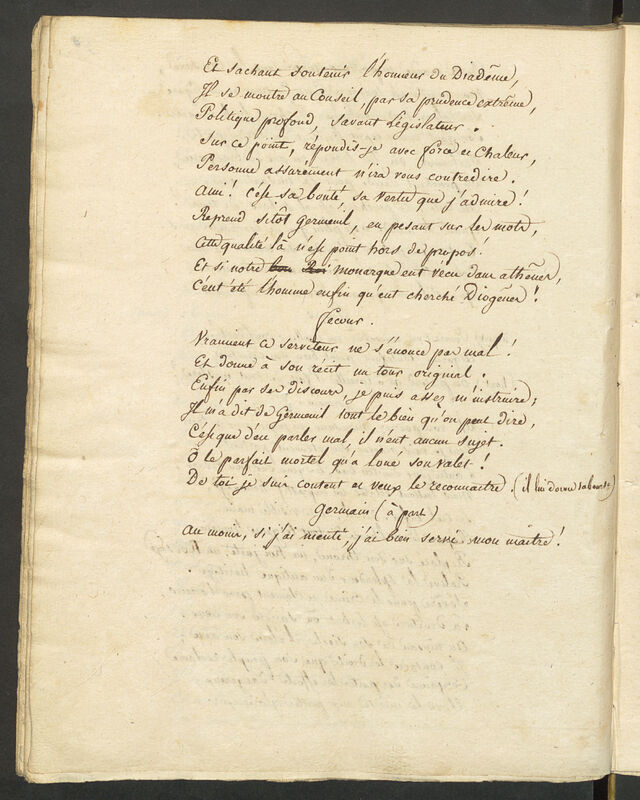 Et sachant soutenir l'honneur du Diadême,
Il se montre au Conseil, par sa prudence extrême,
Politique profond, savant Législateur.
Sur ce point, répondis-je avec force et Chaleur,
Personne assurément n'ira vous contredire.
Ami! c'est sa bonté, sa vertu que j'admire!
Reprend sitôt Germeuil, en pesant sur les mots,
Cette qualité là n'est point hors de propos!
Et si notre bon Roi monarque eut vécu dans athênes,
C'eut été l'homme enfin qu'eut cherché Diogênes!
Vraiment ce serviteur ne s'énonce pas mal!
Et donne à son récit un tour original.
Enfin par ses discours, je puis assez m'instruire;
Il m'a dit de Germeuil tout le bien qu'on peut dire,
C'est que d'en parler mal, il n'eut aucun sujet.
O le parfait mortel qu'a loué son valet!
De toi je suis content et veux le reconnaitre. (il lui donne sa bourse)
Germain (à part)
Au moins, si j'ai menti, j'ai bien servi mon maître!